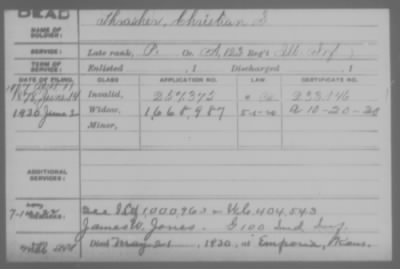 DEAD
NAME OF SOLDIER: Thrasher, Christian
SERVICE: Late rank, P. Co. A, 123 Reg't Ill. Inf.
TERM OF SERVICE: Enlisted , 1 Discharged , 1
DATE OF FILING. CLASS. APPLICATION NO. LAW. CERTIFICATE NO.
Invalid, 257375 233146
1930 June 2 Widow, 1668,987 5-1-20 a 10-20-30
Minor,
ADDITIONAL SERVICES:
REMARKS: See I.O. 1,000,963 - W.C. 404,543
James W. Jones. G 100 Ind Inf.
Died May 21, 1930, at Emporia, Kans.